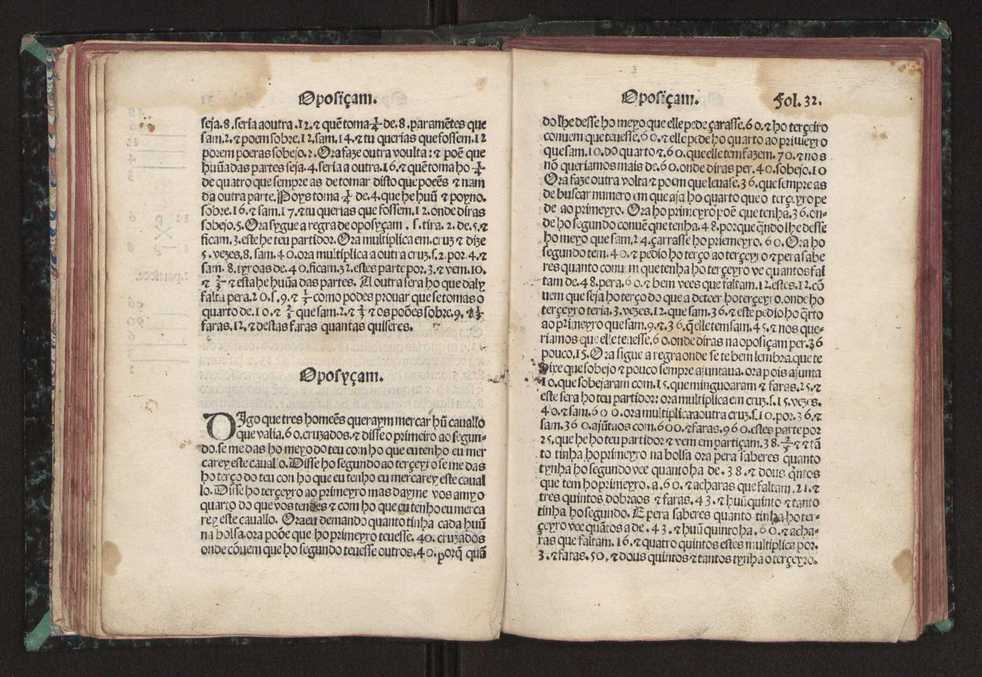 Oposiçam.
seja.8.seria aoutra.12.⁊ quẽ toma ¼ de.8.paramẽtes que
sam.2.⁊ poem sobre.12.sam.14.⁊ tu querias que fossem.12
porem poeras sobejo.2.Ora faze outra voulta:⁊ poẽ que
huũa das partes seja.4.seria a outra.16.⁊ quẽ toma ho ¼
de quatro que sempre as de tomar disto que poẽes ⁊ nam
da outra parte.Poys toma ¼ de.4.que he huũ ⁊ poyno.
sobre.16.⁊ sam.17.⁊ tu querias que fossem.12.onde diras
sobejo.5.Ora sygue a regra de oposyçam.s.tira.2.de.5.⁊
ficam.3.este he teu partidor.Ora multiplica em cruz ⁊ dize
5.vezes.8.sam.40.ora multiplica a outra cruz.s.2.por.4.⁊
sam.8.tyra os de 40.ficam.32.estes parte por.3.⁊ vem.10.
⁊ ⅔ ⁊ esta he huũa das partes.Al outra sera ho que daly
falta pera.20.s.9.⁊ ⅓ como podes prouar que se tomas o
quarto de.10.⁊ ⅔ que sam.2.⁊ ⅔ ⁊ os poões sobre.9.⁊ ⅓
faras.12.⁊ destas faras quantas quiseres.
Oposyçam.
DIgo que tres homeẽs queraym mercar hũ cauallo
que valia.60.cruzados.⁊ disse o primeiro ao segun-
do.se me das ho meyo do teu con ho que eu tenho eu mer
carey este cauallo.Disse ho segundo ao terçeyro se me das
ho terço do teu con ho que eu tenho eu mercarey este caual
lo.Disse ho terçeyro ao primeyro mas dayme vos a my o
quarto do que vos tendes ⁊ com ho que eu tenho eu merca
rey este cauallo. Ora eu demando quanto tinha cada huũ
na bolsa.ora poõe que ho primeyro teuesse.40.cruzados
onde cõuem que ho segundo teuesse outros.40.porq̃ quã
Oposiçam. Fol.32.
do lhe desse ho meyo que elle pede çarasse.60.⁊ ho terçeiro
conuem que teuesse.60.⁊ elle pede ho quarto ao primeyro
que sam.10.do quarto ⁊.60.que elle tem fazem.70.⁊ nos
nõ queriamos mais de.60.onde diras per.40.sobejo.10
Ora faze outra volta ⁊ poem que leuase.36.que sempre as
de buscar numero em que aja ho quarto que o terçeyro pe
de ao primeyro. Ora ho primeyro põe que tenha.36.on-
de ho segundo conuẽ que tenha.48.por que q̃ndo lhe desse
ho meyo que sam.24.çarrasse ho priemeyro.60.Ora ho
segundo tem.40.⁊ pedio ho terço ao terçeyro ⁊ pera sabe
res quanto conuem que tenha ho terçeyro ve quantos fal
tam de.48.pera.60.⁊ bem vees que faltam.12.estes.12.cõ
uem que seja ho terço do que a de teer ho terçeyro.onde ho
terçeyro teria.3.vezes.12.que sam.36.⁊ este pedio ho q̃rto
ao primeyro que sam.9.⁊.36.q̃ elle tem sam.45.⁊ nos que-
riamos que elle teuesse.60.onde diras na oposiçam per.36
pouco.15.Ora sigue a regra onde se te bem lembra.que te
dixe que sobejo ⁊ pouco sempre ajuntaua.ora pois ajunta
10.que sobejaram com.15.que minguoaram ⁊ faras.25.⁊
este sera ho teu partidor:ora multiplica em cruz.s.15.vezes.
40.⁊ sam.600.ora multiplica a outra cruz.s.10.por.36.⁊
sam.360.ajũta os com.600.⁊ faras.960.estes parte por
25.que he ho teu partidor ⁊ vem em partiçam.38.⅖ ⁊ tã
to tinha ho primeyro na bolsa ora pera saberes quanto
tynha ho segundo vee quanto ha de.38.⁊ dous q̃ntos
que tem ho primeyro.a.60.⁊ acharas que faltam.21.⁊
tres quintos dobra os ⁊ faras.43.⁊ huũ quinto ⁊ tanto
tinha ho segundo. E pera saberes quanto tinha ho ter-
çeyro vee quãtos a de.43.⁊ huũ quinto ha.60.⁊ acha-
ras que faltam.16.⁊ quatro quintos estes multiplica por.
3.⁊ faras.50.⁊ dous quintos ⁊ tantos tynha o terçeyro.